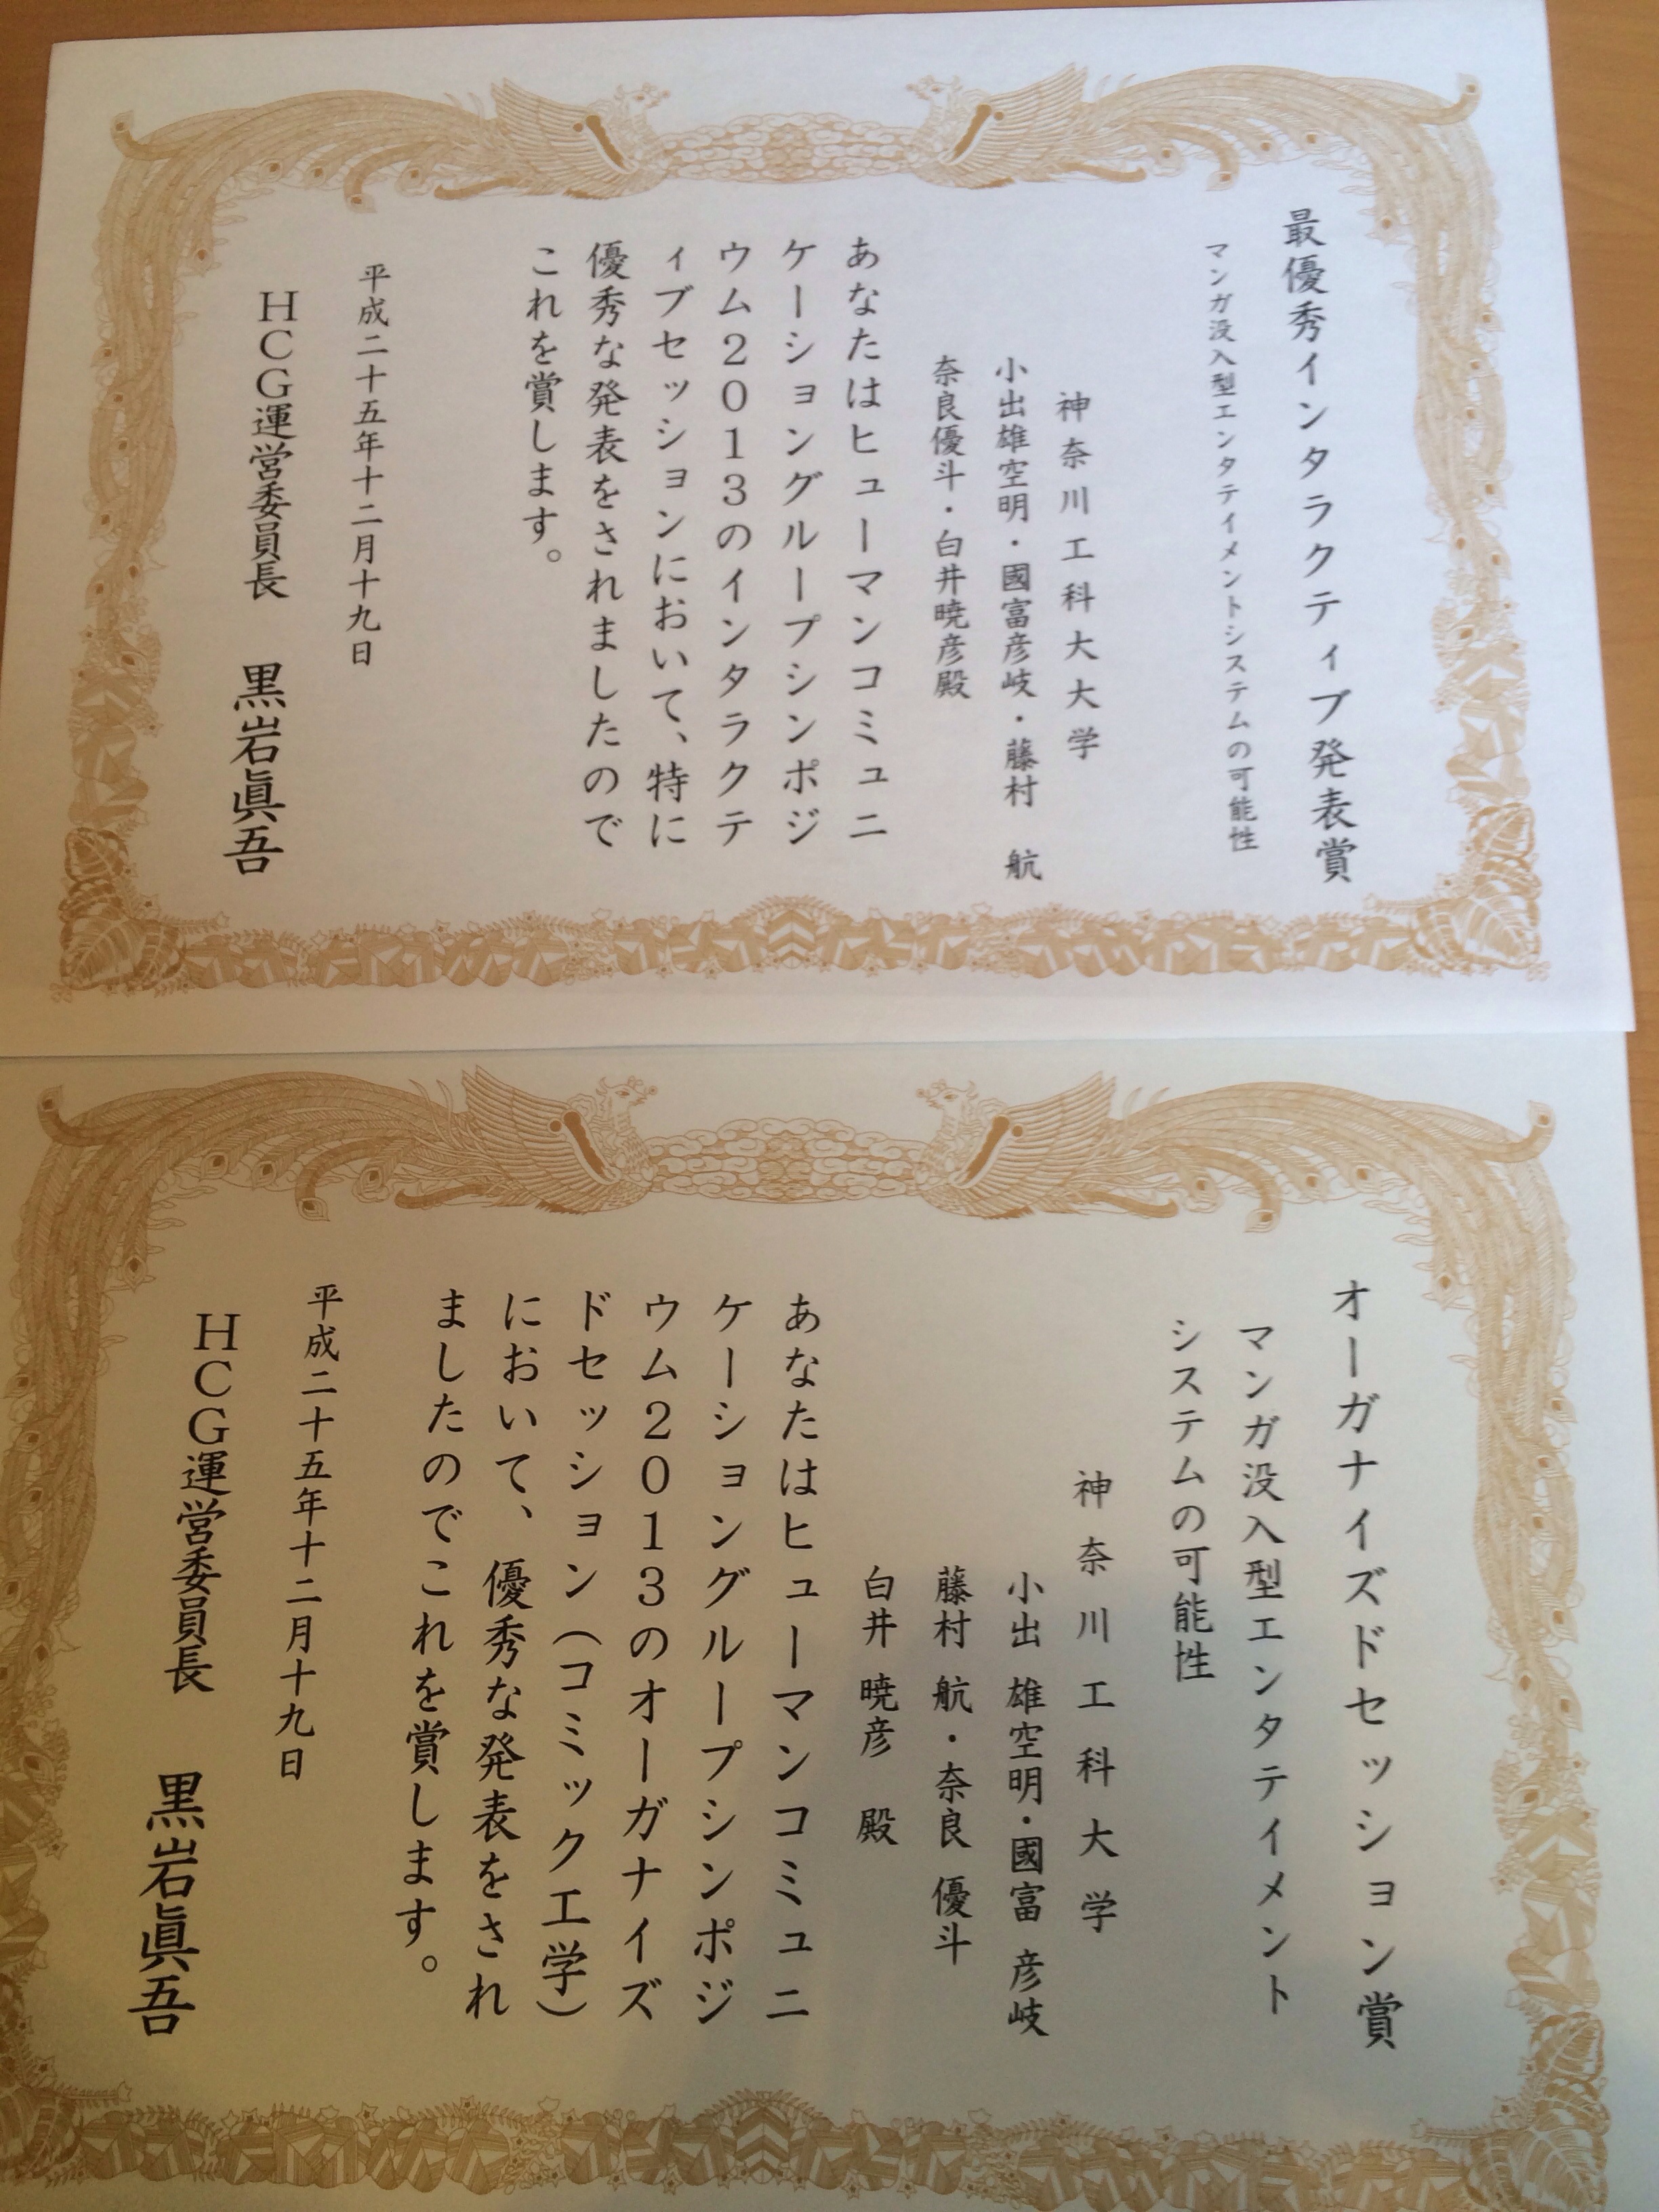 最優秀インタラクティブ発表賞
マンガ没入型エンタテイメントシステムの可能性
神奈川工科大大学
小出雄空明・國富彦岐・藤村 航
奈良優斗・白井暁彦殿
あなたはヒューマンコミュニ
ケーショングループシンポジ
ウム2013のインタラクテ
ィブセッションにおいて、特に
優秀な発表をされましたので
これを賞します。
平成二十五年十二月十九日
HCG運営委員長 黒岩眞吾
オーガナイズドセッション賞
マンガ没入型エンタテイメント
システムの可能性
神奈川工科大学
小出 雄空明・國富 彦岐
藤村 航・奈良 優斗
白井 暁彦 殿
あなたはヒューマンコミュニ
ケーショングループシンポジ
ウム2013のオーガナイズ
ドセッション(コミック工学)
において、優秀な発表をされ
ましたのでこれを賞します。
平成二十五年十二月十九日
HCG運営委員長 黒岩眞吾